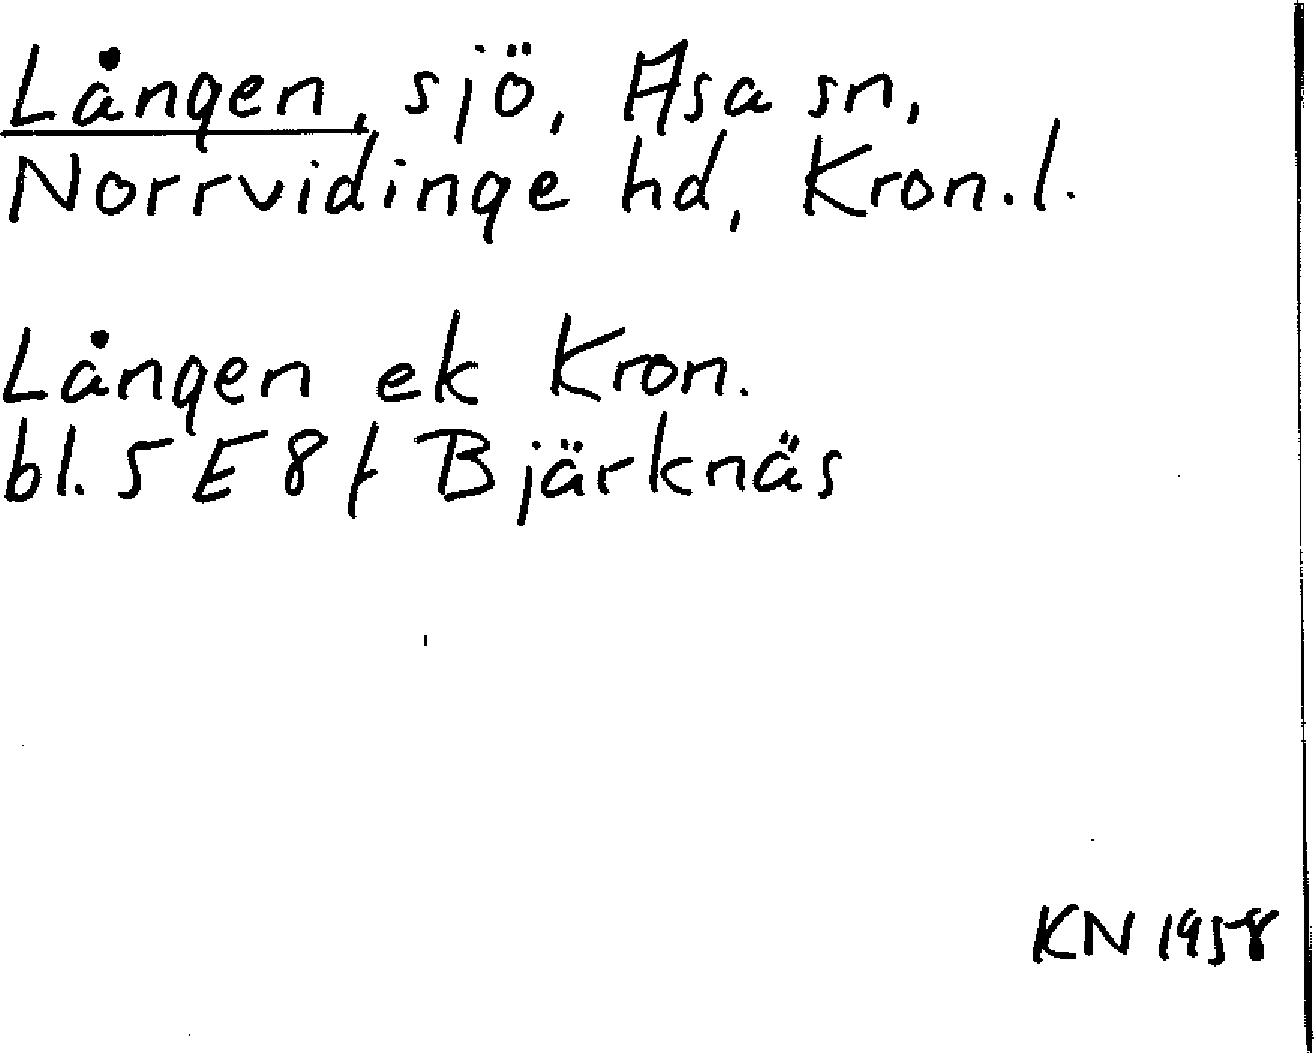 Lången, sjö, Asa sn,
Norrvidinge hd, Kron.l.
Lången ek Kron.
bl. 5 E 8 f Bjärknäs
KN 1958